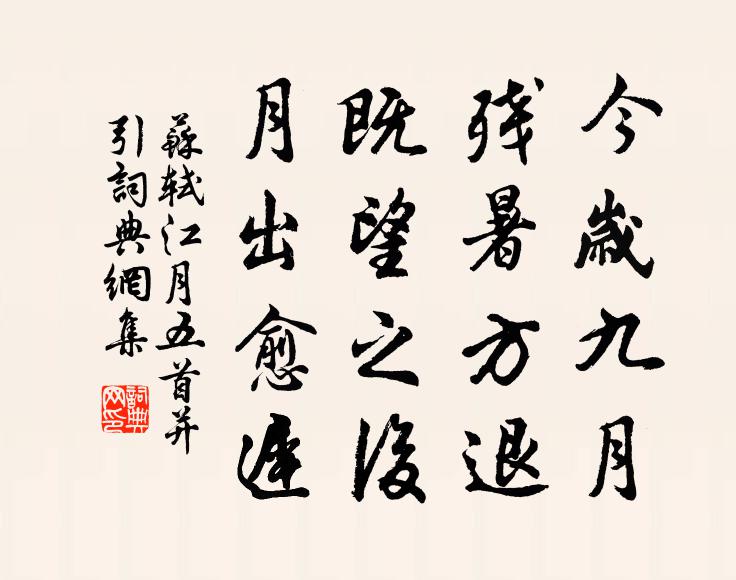 今歲九月
残暑方退
既望之後
月出愈遲
蘇軾江月五首并
引詞典網集
詞典
网印